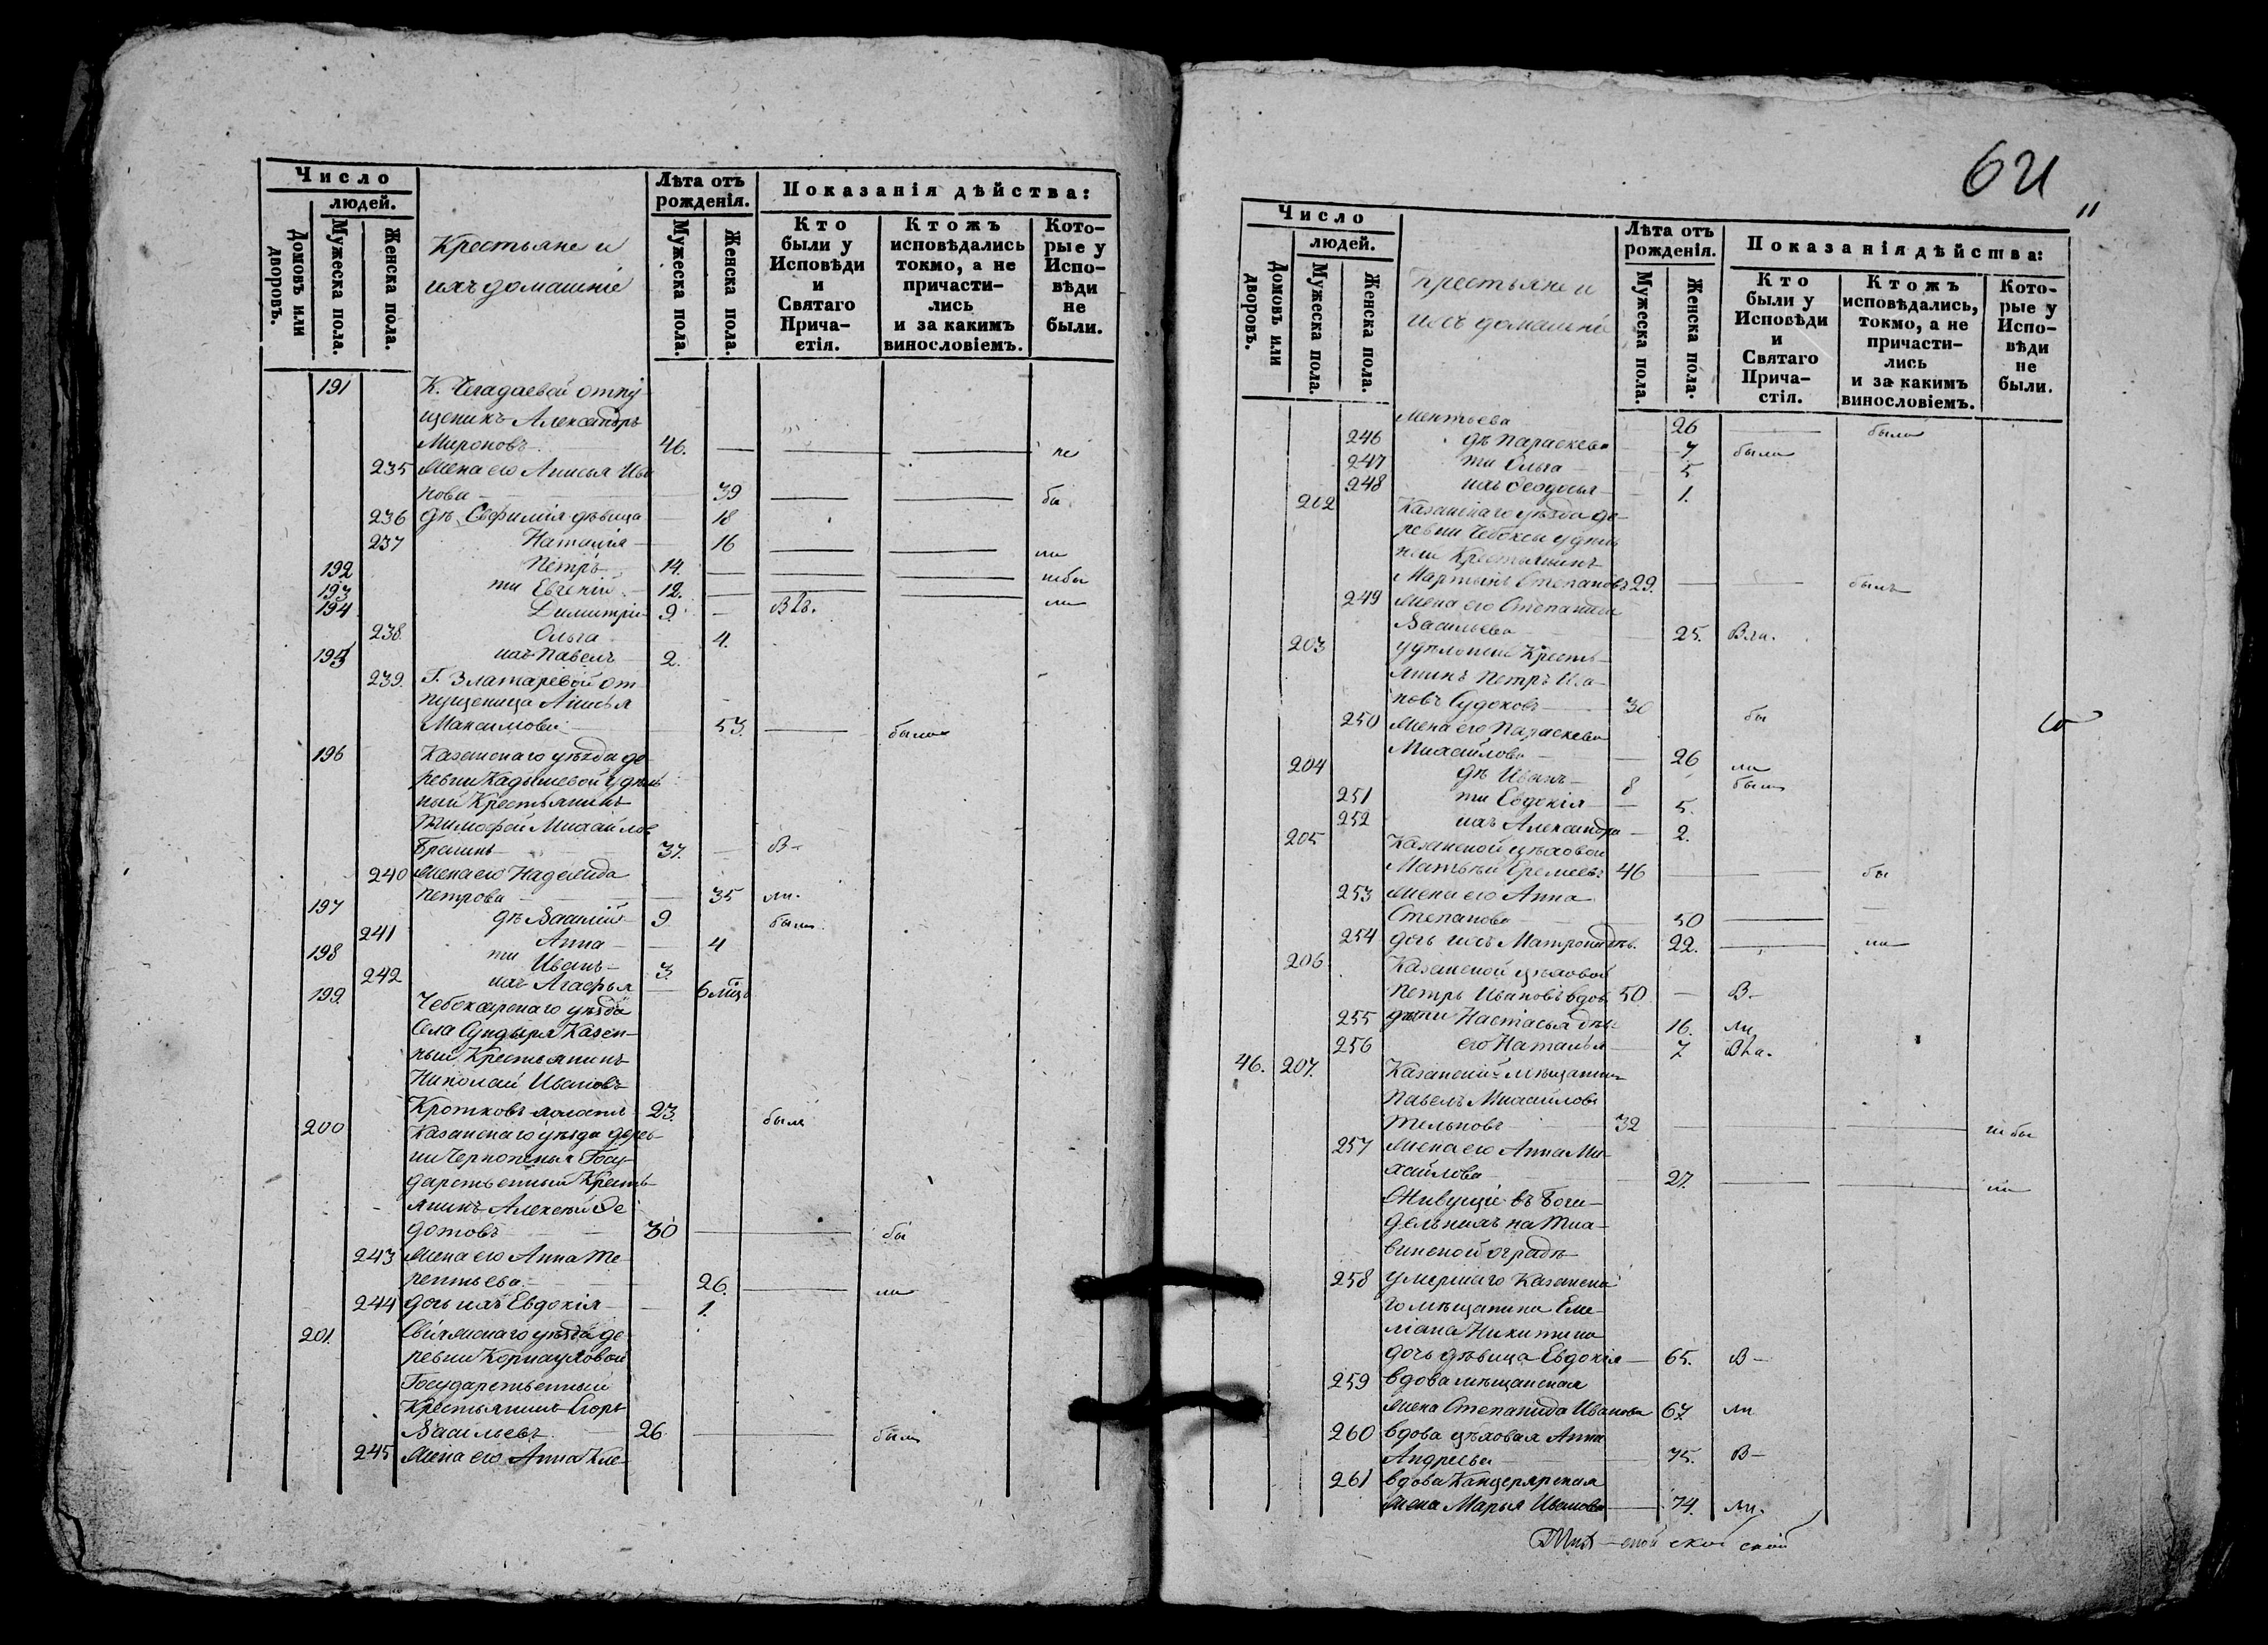 Число
людей.
Домовъ или дворовъ.
Мужеска пола.
Женска пола.
Крестьяне и
ихъ домашніе
Лѣта отъ
рожденія.
Мужеска пола.
Женска пола.
Показанія дѣйства:
Кто были у Исповѣди и Святаго Прича-стія.
Ктожъ исповѣдались токмо, а не причасти-лись и за какимъ винословіемъ.
Кото-рые у Испо-вѣди не были.
191 К. Чегадаевой отпу
щеникъ Александръ
Мироновъ 46. не
235 Жена его Анисья Ива
нова 39 бы
236 дѣ Евфимія дѣвица 18
237 Наталія 16 ли
192 Петръ 14. не бы
193 ти Евгеній 12. ли
194 Димитрій 9
238. Ольга 4.
195 ихъ Павелъ 2.
239. Г. Златаревой от
пущеница Анисья
Максимова 53. была
196 Казанскаго уѣзда де
ревни Кадышевой Удѣль
ный Крестьянинъ
Тимофей Михайлов
37. В-
240 Жена его Надежда
Петрова 35 ли.
197 дѣ Василій 9 были
241 Анна 4
198 ти Иванъ 3.
242 ихъ Агафья 6 мцъ
199. Чебоксарскаго уѣзда
Села Сундыря Казен-
ный Крестьянинъ
Николай Ивановъ
Кротковъ холостъ 23. былъ
200 Казанскаго уѣзда дерев-
ни Госу-
дарственный Кресть-
янинъ Алексѣй Ѳе
дотовъ 30 бы
243 Жена его Анна Те-
рентьева 26. ли
244 дочь ихъ Евдокія 1.
201. Свіяжскаго уѣзда де-
ревни Корноуховой
Государственный
Крестьянинъ Егоръ
Васильевъ 26 былъ
245 Жена его Анна Кле-
62
11
Число
людей.
Домовъ или дворовъ.
Мужеска пола.
Женска пола.
Крестьяне и
ихъ домашніе
Лѣта отъ
рожденія.
Мужеска пола.
Женска пола.
Показанія дѣйства:
Кто были у Исповѣди и Святаго Прича-стія.
Ктожъ исповѣдались, токмо, а не причасти-лись и за какимъ винословіемъ.
Кото-рые у Испо-вѣди не были.
ментьева 26 была
246 дѣ Параскева 7 была
247 ти Ольга 5
248 ихъ Ѳеодосья 1.
202 Казанскаго уѣзда де-
ревни Чебоксы удѣль
ный Крестьянинъ
Мартынъ Степановъ 29. былъ
249 Жена его Степанида
Васильева 25.
203 удѣльный Кресть-
янинъ Петръ Ива-
новъ Судоковъ 30 бы
250 Жена его Параскева
Михайлова 26 ли
204 дѣ Иванъ 8 былъ
251 ти Евдокія 5.
252 ихъ Александра 2.
205 Казанской цѣховой
Матвѣй Еремеевъ 46 бы
253 Жена его Анна
Степанова 50
254 дочь ихъ Матрона дѣв. 22. ли
206 Казанской цѣховой
Петръ Ивановъ вдов 50. В-
255 дѣти Настасья дѣв. 16. ли
256 его Наталья 7
46. 207. Казанскій мѣщанинъ
Павелъ Михайловъ
Тельновъ 32 не бы
257 Жена его Анна Ми-
хайлова 27. ли
Живущіе въ Бога-
дельняхъ на Тих-
винской оградѣ
258 умершаго Казанска
го мѣщанина Еме-
ліана Никитина
дочь дѣвица Евдокія 65. В-
259 вдова мѣщанская
жена Степанида Иванова 67 ли
260 вдова цѣховая Анна
Андреева 75. В-
261 вдова Канцелярская
жена Марья Иванова 74. ли.